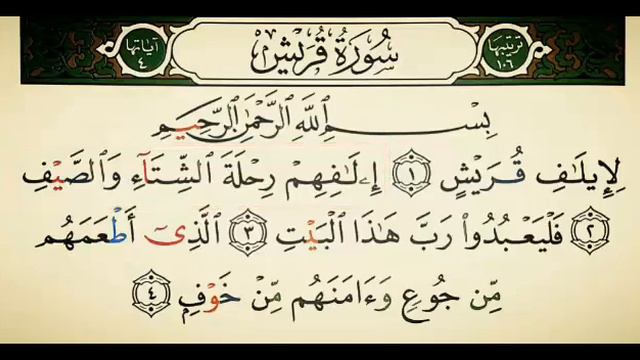 آياتها ٤ سُورَةُ قُرَيْشٍ ترتيبها ١٠٦
بِسْمِ ٱللَّهِ ٱلرَّحْمَٰنِ ٱلرَّحِيمِ
لِإِيلَٰفِ قُرَيْشٍ ١ إِۦلَٰفِهِمْ رِحْلَةَ ٱلشِّتَآءِ وَٱلصَّيْفِ
٢ فَلْيَعْبُدُوا۟ رَبَّ هَٰذَا ٱلْبَيْتِ ٣ ٱلَّذِىٓ أَطْعَمَهُم
مِّن جُوعٍ وَءَامَنَهُم مِّنْ خَوْفٍ ٤